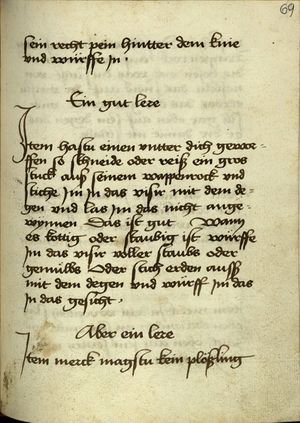 69
sein recht pein hintter dem knie
vnd würffe in .
Ein gut lere
Item hastu einen vntter dich gewor=
ffen so schneide oder reiß ein gros
stuck auß seinem wappenrock vnd
stiche Im In das visir mit dem de=
gen vnd las im das nicht ange=
wynnen Das ist gut Wann
es kottig oder staubig ist würffe
In das visir voller staubs oder
gemülbs Oder stich erden auss
mit dem degen vnd würff im das
in das gesicht .
Aber ein lere
Item merck magstu kein plößling